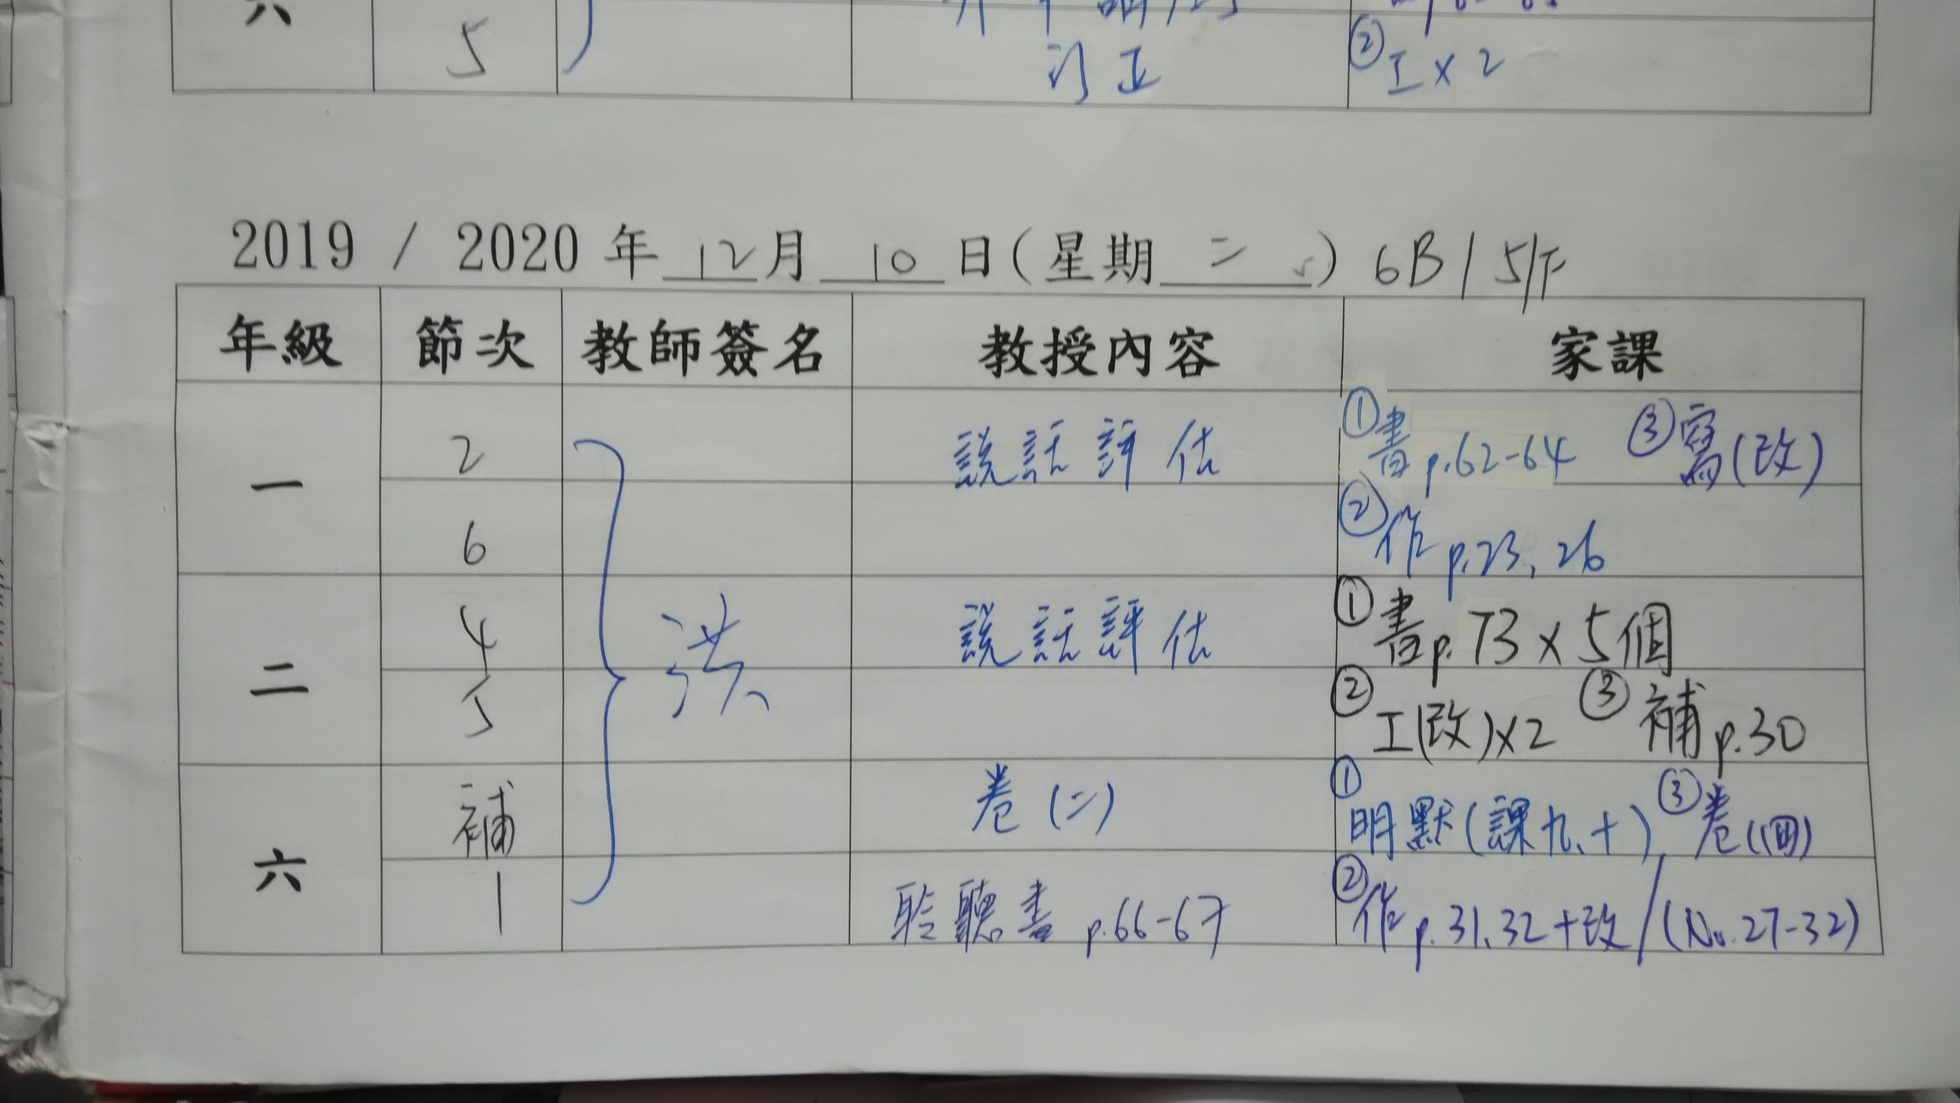 六 5
訂正 ②工×2
2019 / 2020 年 12 月 10 日(星期 二 ) 6B / 5/F
年級 節次 教師簽名 教授內容 家課
一 2 說話評估 ①書p.62-64 ③寫(改)
6 ②作p.23, 26
二 4 洪 說話評估 ①書p.73×5個
5 ②工(改)×2 ③補p.30
六 補 卷(二) ①明默(課九、十) ③卷(四)
1 聆聽書 p.66-67 ②作p.31,32+改/(No.27-32)